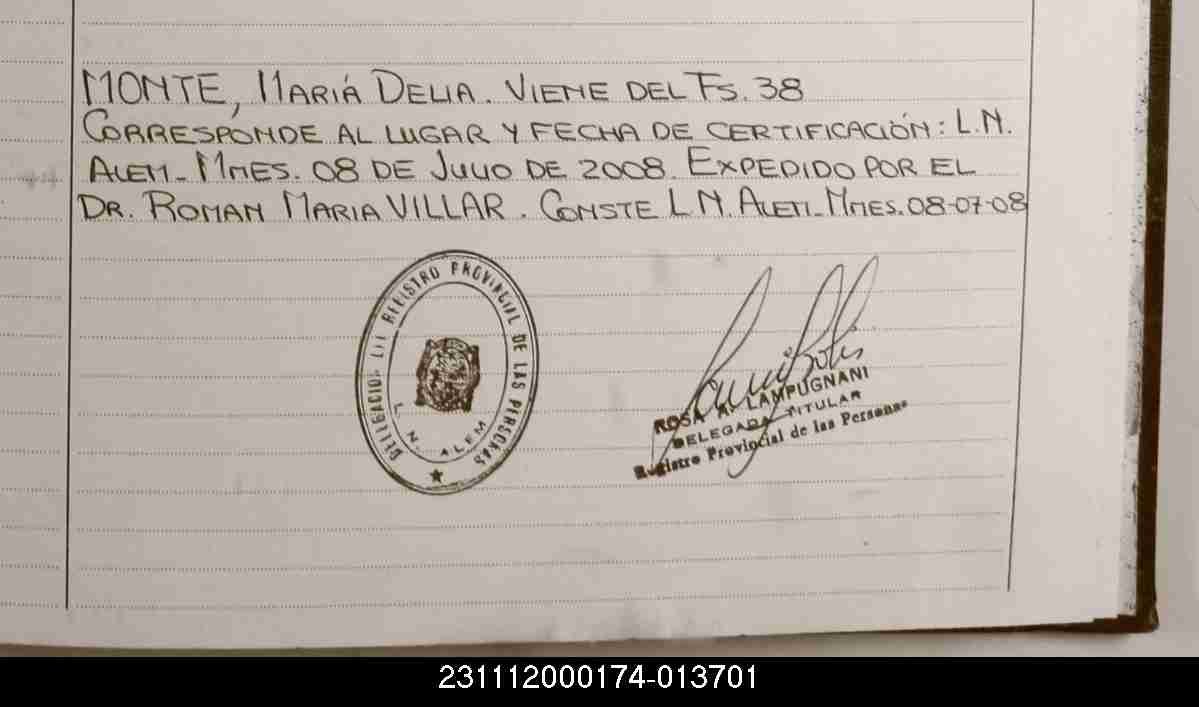 MONTE, MARIÁ DELIA. VIENE DEL FS. 38
CORRESPONDE AL LUGAR Y FECHA DE CERTIFICACIÓN: L.N.
ALEM - MNES. 08 DE JULIO DE 2008. EXPEDIDO POR EL
DR. ROMAN MARIA VILLAR. CONSTE L N. ALEM - MNES. 08-07-08
DELEGACION DEL REGISTRO PROVINCIAL DE LAS PERSONAS
L. N. ALEM
ROSA A. LAMPUGNANI
DELEGADA TITULAR
Registro Provincial de las Personas
231112000174-013701